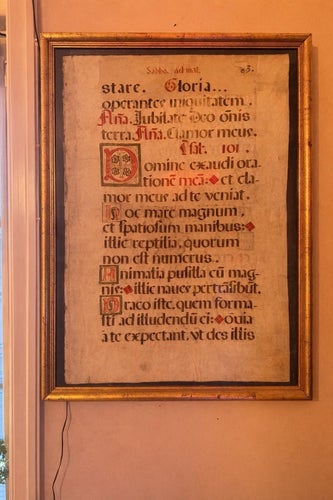 Sabbo. ad mat. 83.
stare. Gloria...
operantes iniquitatem.
Aña. Jubilate Deo oñis
terra. Aña. Clamor meus.
Psal. 101.
Domine exaudi ora
tionẽ meã: et cla-
mor meus ad te veniat.
Hoc mare magnum,
et spatiosum manibus:
illic reptilia, quorum
non est numerus.
Animalia pusilla cũ mag-
nis: illic naves pertrãsibũt.
Draco iste, quem forma-
sti ad illudendũ ei: oṽia
a te expectant, vt des illis